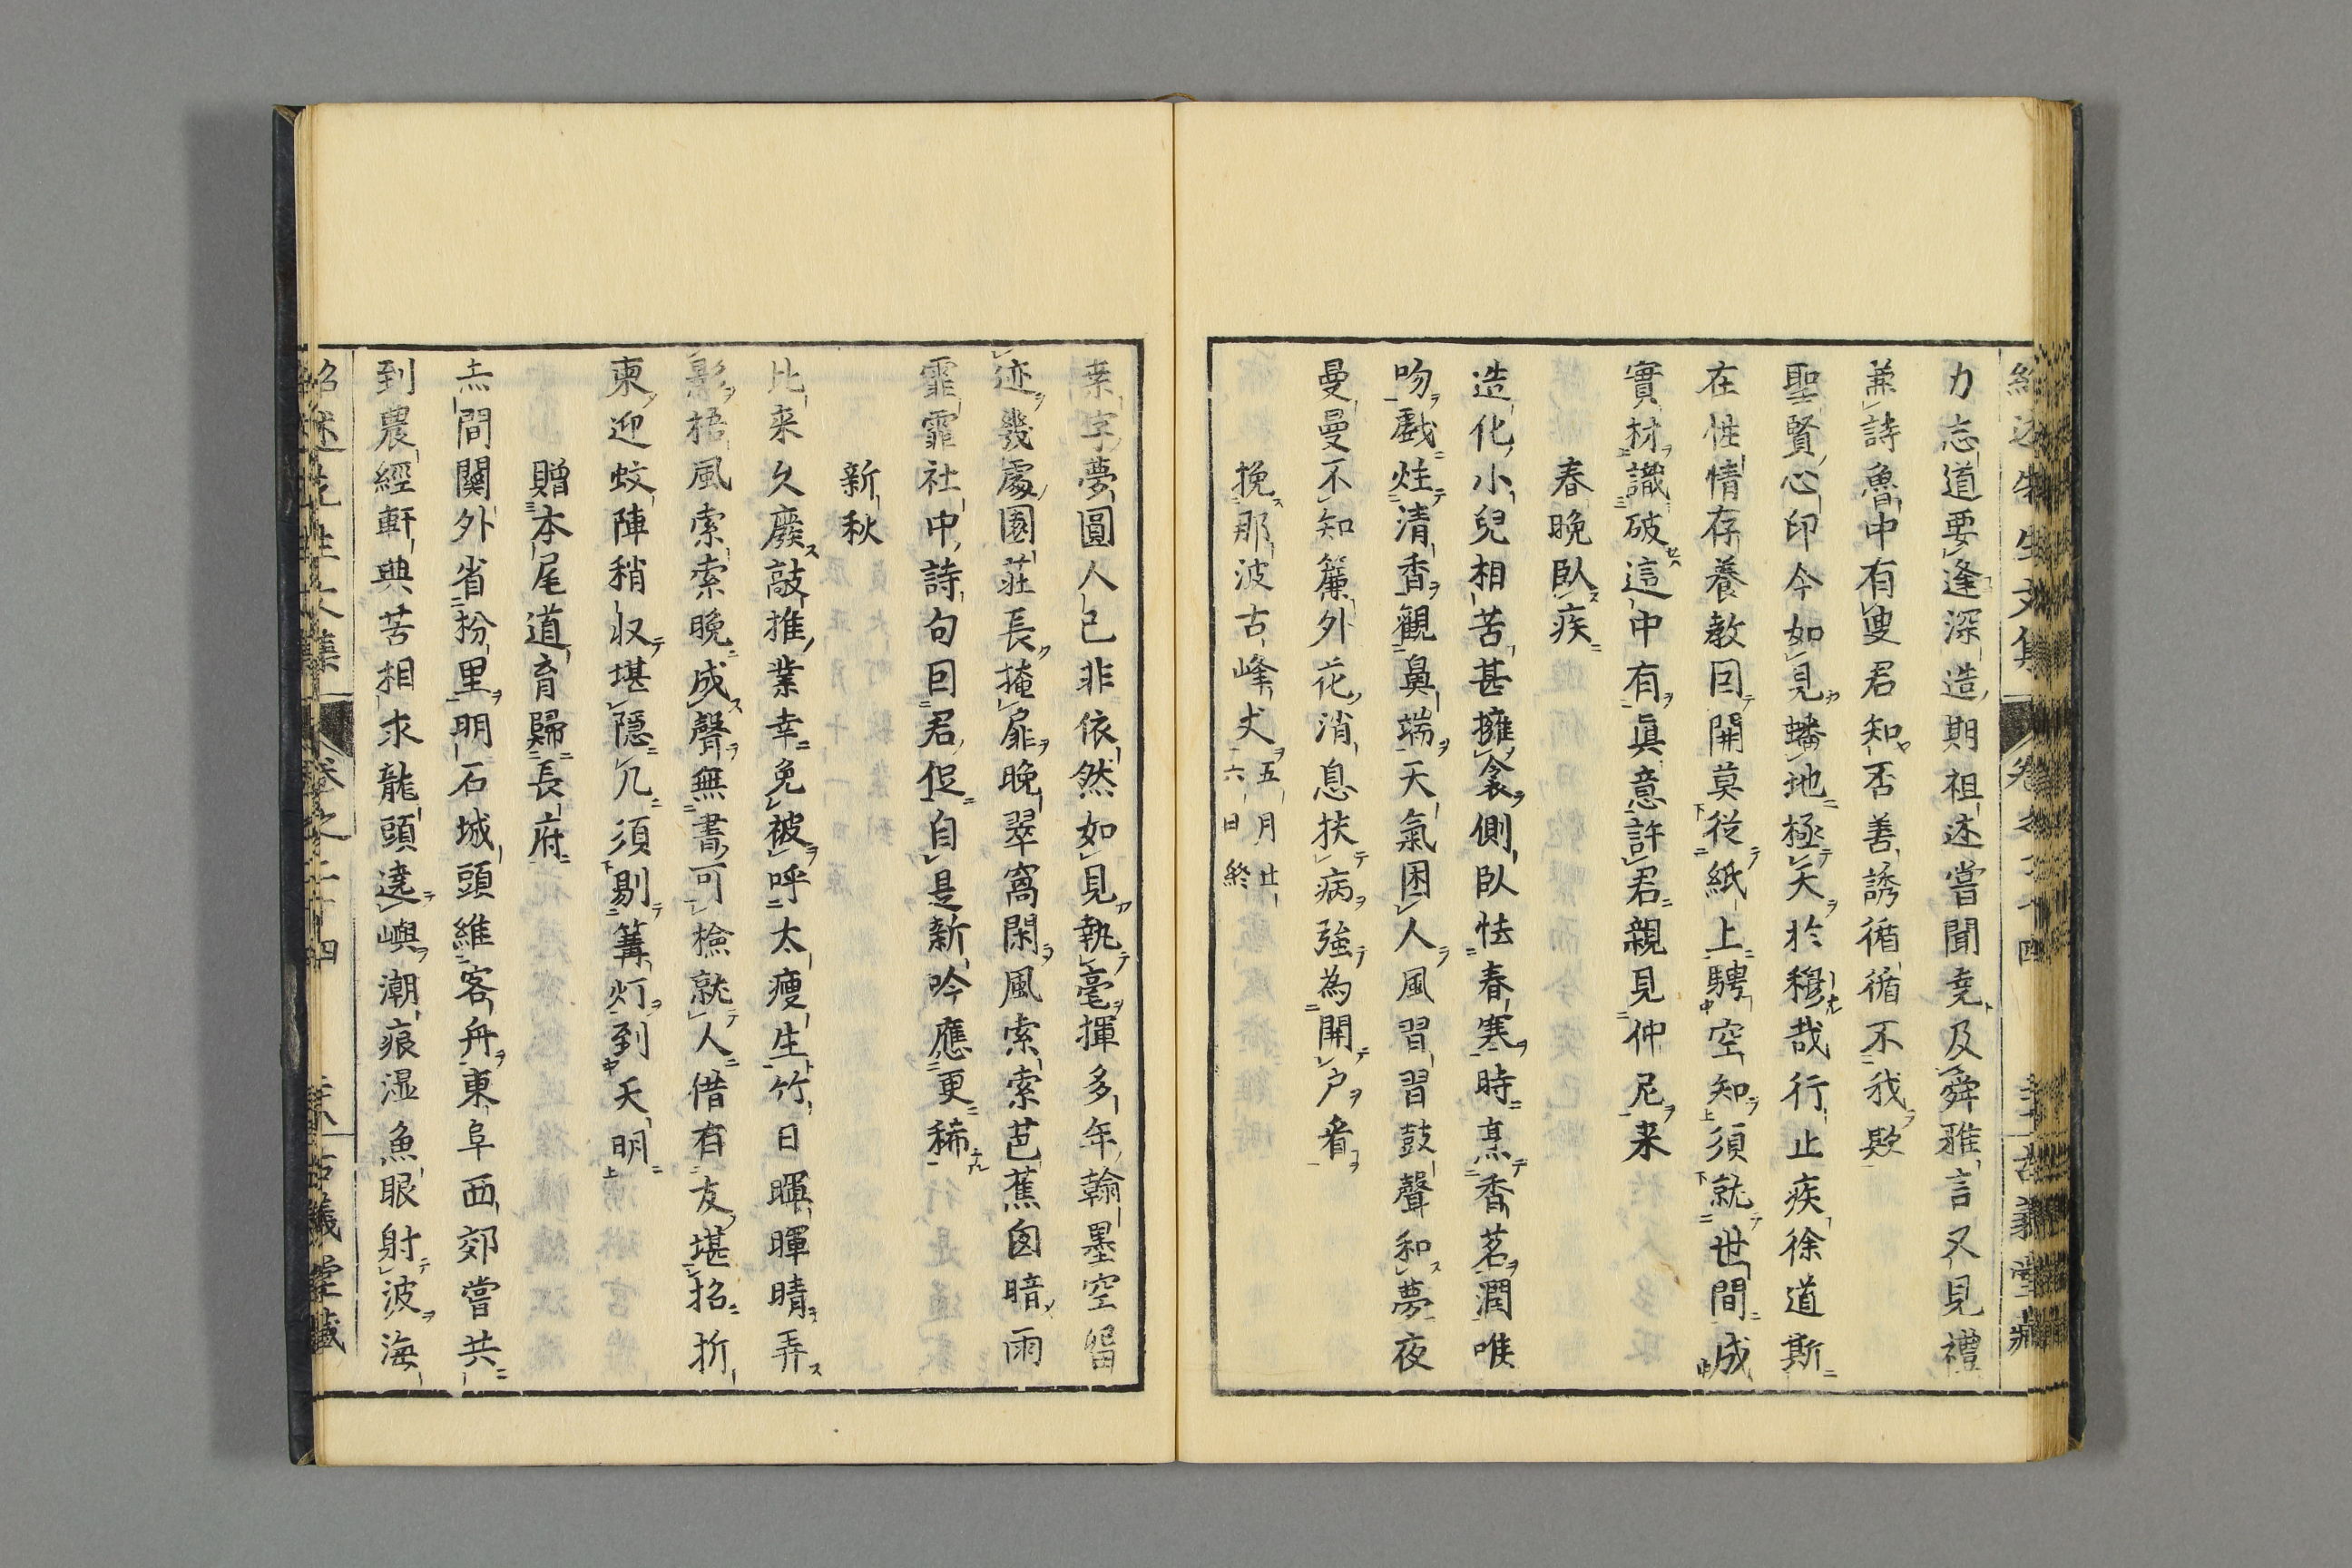 紹述先生文集 卷之二十四 古義堂藏
力忘道要逢深造期祖述嘗聞堯及舜雅言又見禮
兼詩魯中有叟君知否善誘循循不我欺
聖賢心印今如見蟠地極天於穆哉行止疾徐道斯
在性情存養教回開莫從紙上騁空知須就世間成
實材識破這中有眞意許君親見仲尼来
春晚臥疾
造化小兒相苦甚擁衾側臥怯春寒時烹香茗潤唯
吻戲炷清香觀鼻端天氣困人風習習鼓聲和夢夜
曼曼不知簾外花消息扶病強為開戸看
挽那波古峰丈五月廿六日終
桒字夢圓人已非依然如見執毫揮多年翰墨空留
迹幾處園荘長掩扉晚翠窩閑風索索芭蕉囱暗雨
霏霏社中詩句回君促自是新吟應更稀
新秋
比来久廢敲推業幸免被呼太瘦生竹日暉暉晴弄
影梧風索索晚成聲無書可檢就人借有友堪招折
柬迎蚊陣稍収堪隠几須剔篝灯到天明
贈本尾道育歸長府
赤間關外省枌里明石城頭維客舟東阜西郊嘗共
到農經軒典苦相求龍頭遶嶼潮痕湿魚眼射波海
紹述先生文集 卷之二十四 古義堂藏